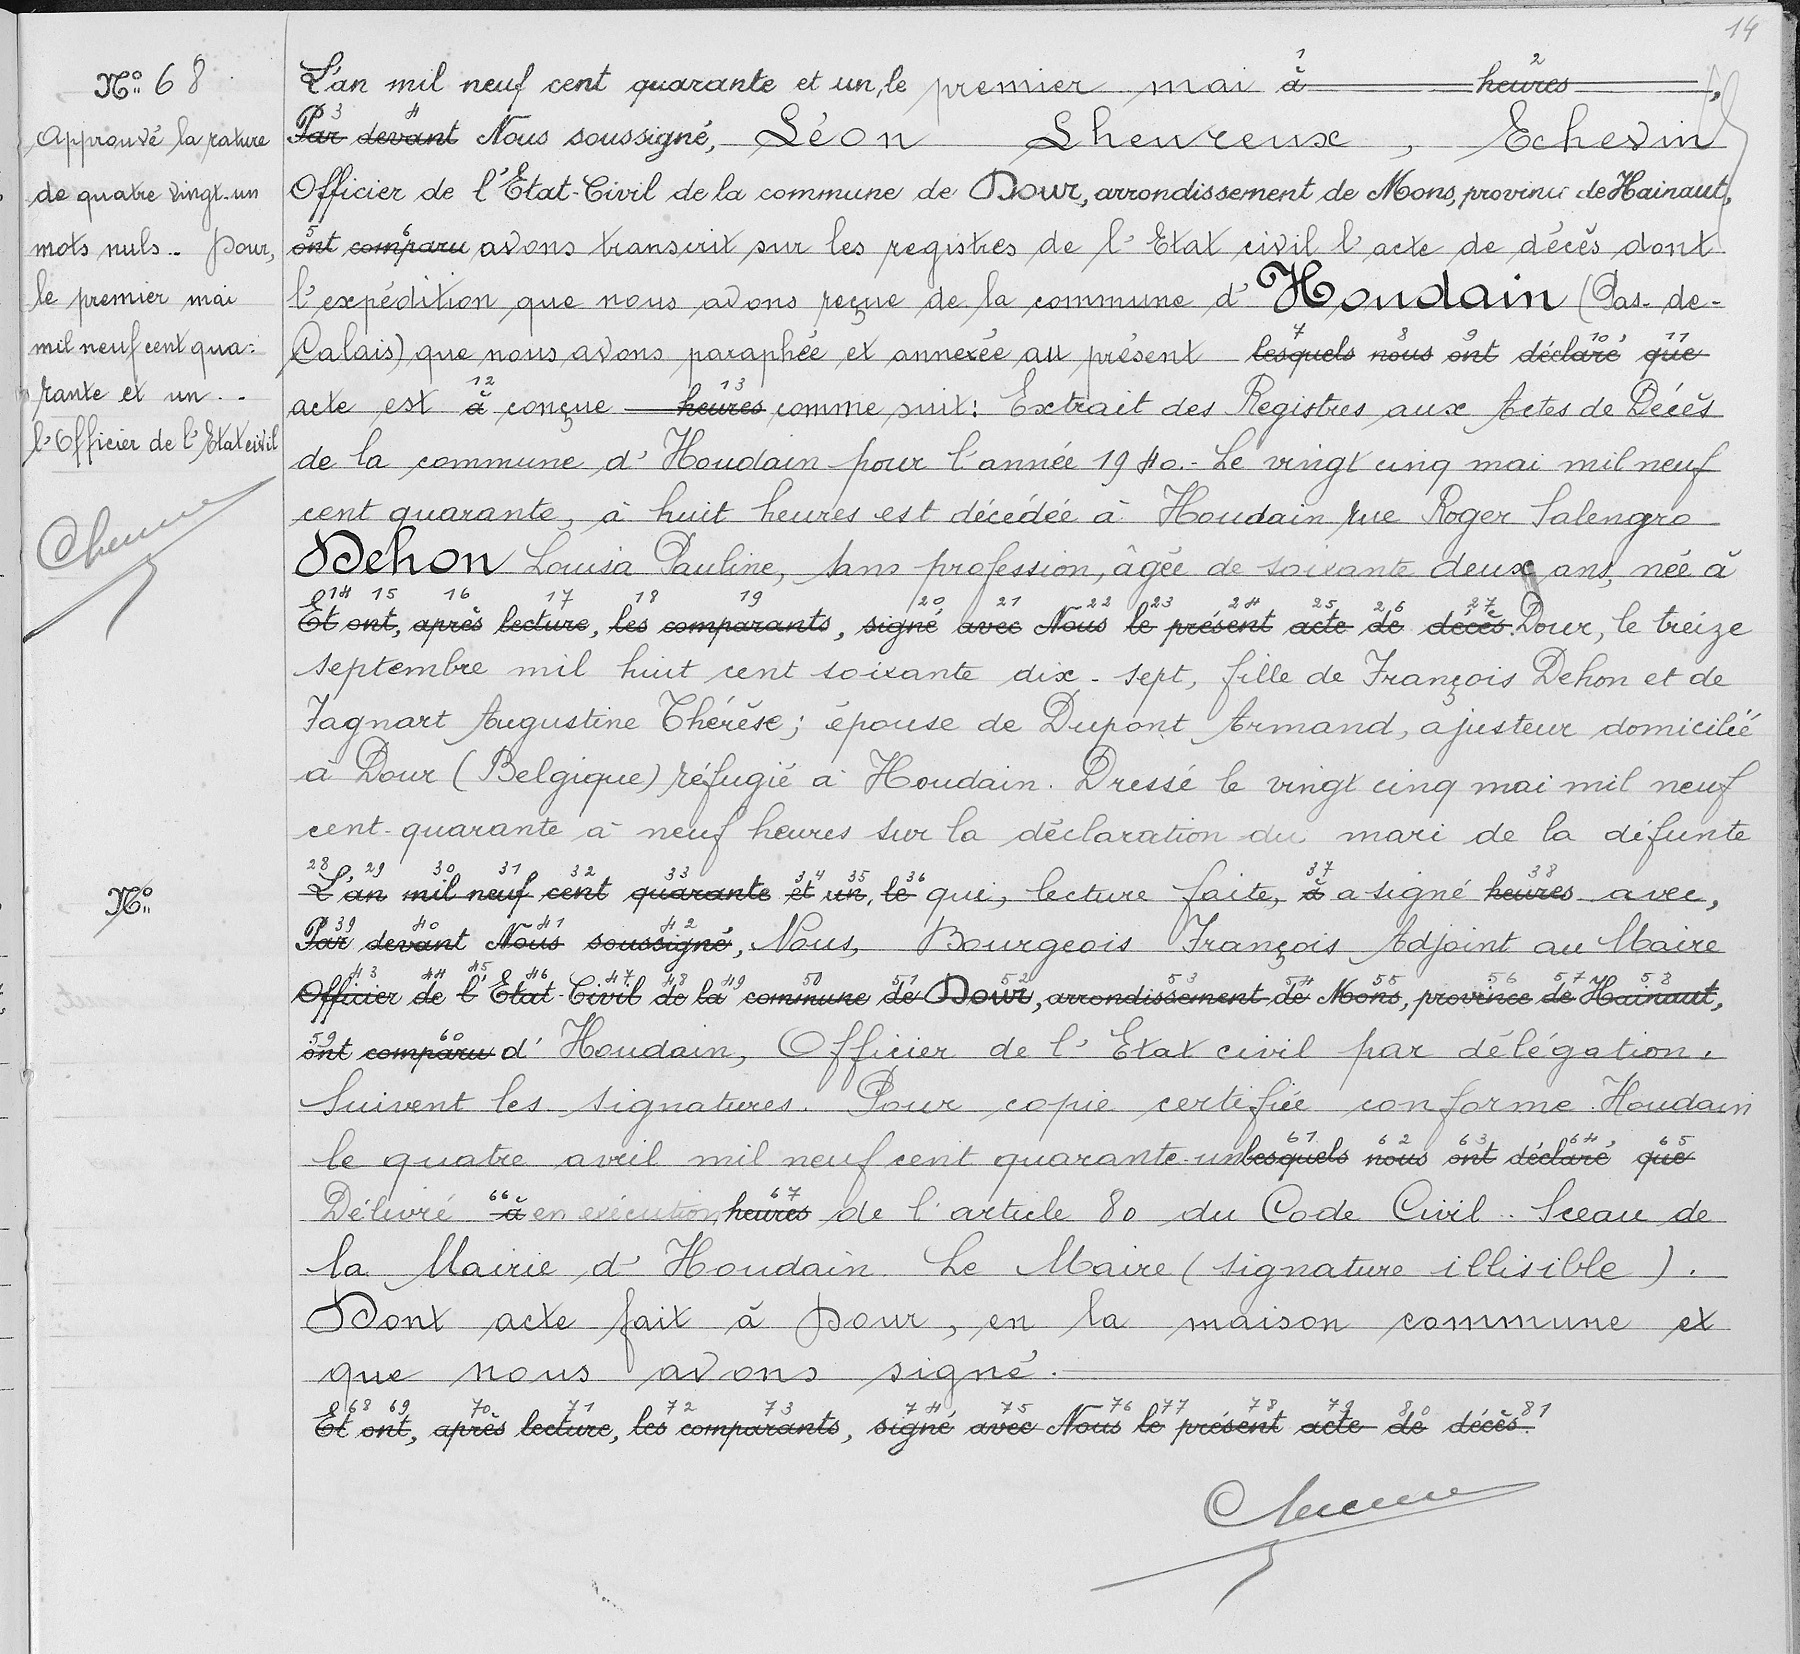 14
N° 68
Approuvé la rature
de quatre vingt-un
mots nuls.. Dour,
le premier mai
mil neuf cent qua-
rante et un..
l'Officier de l'Etat civil
N°
L'an mil neuf cent quarante et un, le premier mai 1 à 2 heures
3 Par 4 devant Nous soussigné, Léon Lheureux, Echevin
Officier de l'Etat-Civil de la commune de Dour, arrondissement de Mons, province de Hainaut,
5 ont 6 comparu avons transcrit sur les registres de l'Etat civil l'acte de décès dont
l'expédition que nous avons reçue de la commune d'Houdain (Pas-de-
Calais) que nous avons paraphée et annexée au présent 7 lesquels 8 nous 9 ont 10 déclaré 11 que
acte est 12 à conçue 13 heures comme suit: Extrait des Registres aux Actes de Décès
de la commune d'Houdain pour l'année 1940.- Le vingt cinq mai mil neuf
cent quarante, à huit heures est décédée à Houdain rue Roger Salengro
Dehon Louisa Pauline, sans profession, âgée de soixante deux ans, née à
14 Et 15 ont, 16 après 17 lecture, 18 les 19 comparants, 20 signé 21 avec 22 Nous 23 le 24 présent 25 acte 26 de 27 décès. Dour, le treize
septembre mil huit cent soixante dix-sept, fille de François Dehon et de
Fagnart Augustine Thérèse; épouse de Dupont Armand, ajusteur domicilié
à Dour (Belgique) réfugié à Houdain. Dressé le vingt cinq mai mil neuf
cent-quarante à neuf heures sur la déclaration du mari de la défunte
28 L'29 an 30 mil 31 neuf 32 cent 33 quarante 34 et 35 un, 36 le qui, lecture faite, 37 à a signé 38 heures avec,
39 Par 40 devant 41 Nous 42 soussigné, Nous, Bourgeois François Adjoint au Maire
43 Officier 44 de 45 l'46 Etat-47 Civil 48 de 49 la 50 commune 51 de 52 Dour, 53 arrondissement 54 de 55 Mons, 56 province 57 de 58 Hainaut,
59 ont 60 comparu d'Houdain, Officier de l'Etat civil par délégation.
Suivent les signatures. Pour copie certifiée conforme. Houdain
le quatre avril mil neuf cent quarante-un 61 lesquels 62 nous 63 ont 64 déclaré 65 que
Délivré 66 à en exécution 67 heures de l'article 80 du Code Civil.. Sceau de
la Mairie d'Houdain. Le Maire (signature illisible).
Dont acte fait à Dour, en la maison commune et
que nous avons signé.
68 Et 69 ont, 70 après 71 lecture, 72 les 73 comparants, 74 signé 75 avec 76 Nous 77 le 78 présent 79 acte 80 de 81 décès.